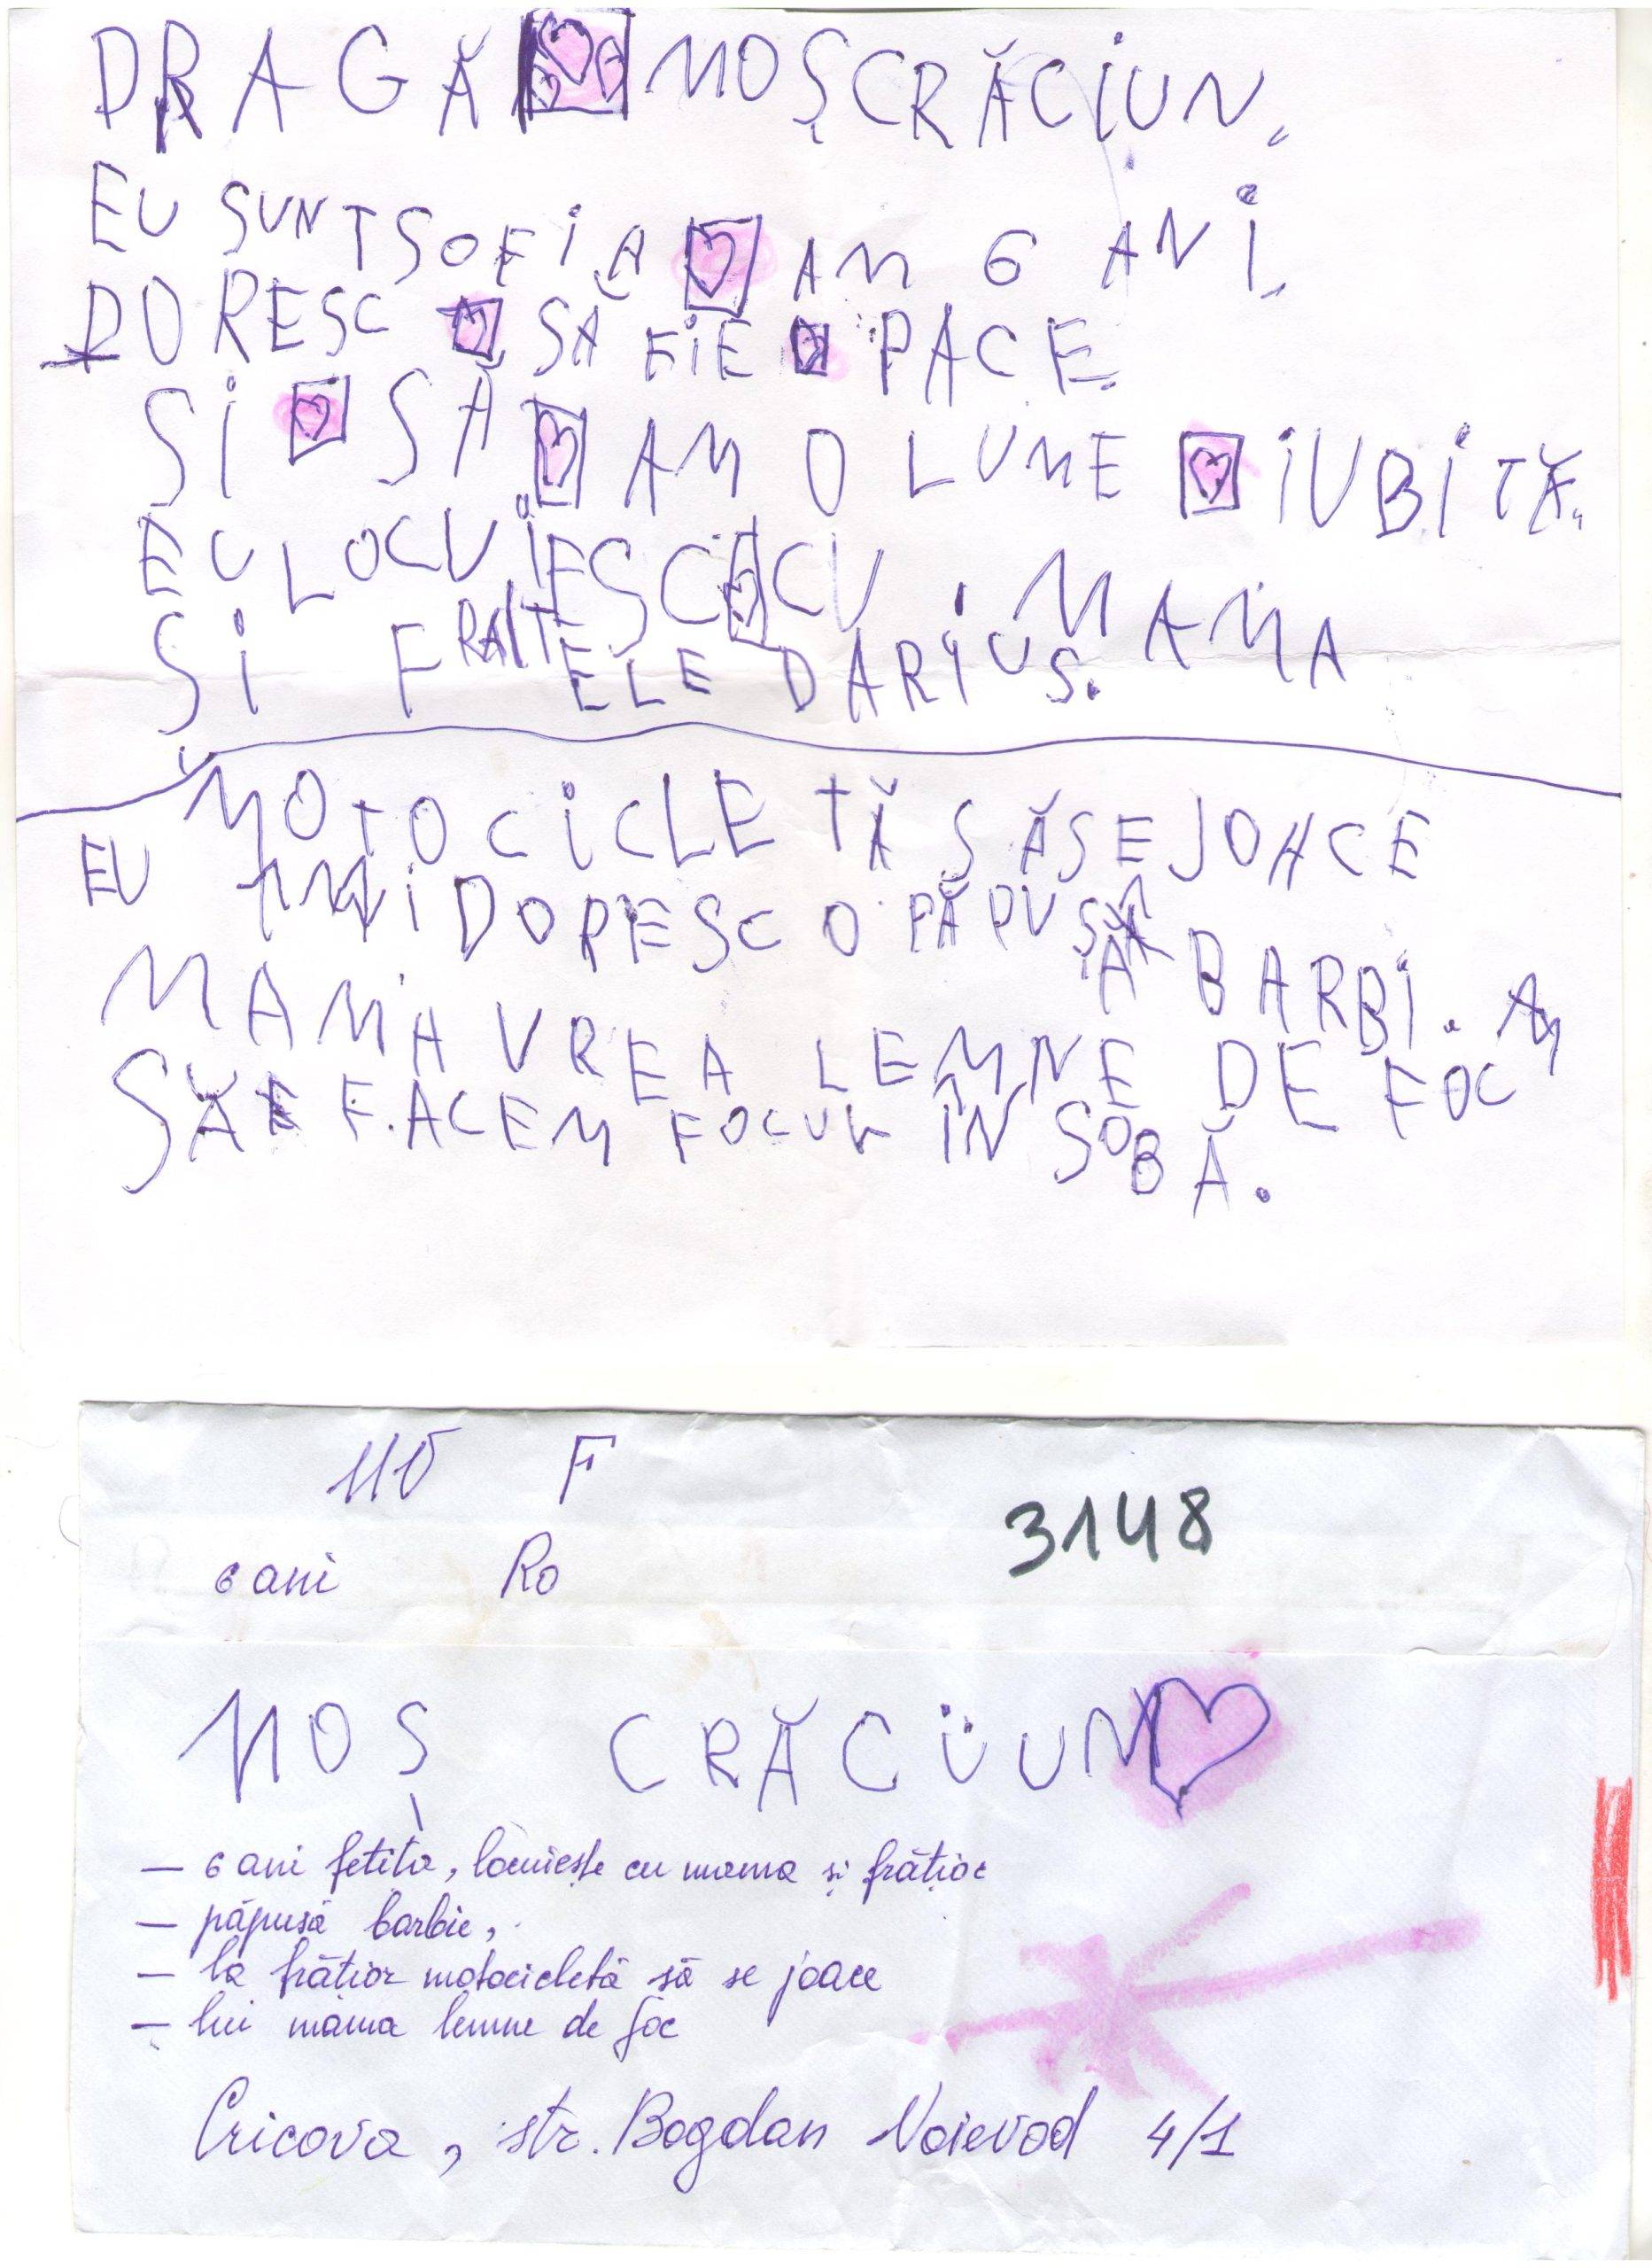 DRAGĂ MOȘ CRĂCIUN.
EU SUNT SOFIA AM 6 ANI.
DORESC SĂ FIE PACE.
SI SĂ AM O LUME IUBITĂ.
EU LOCUIESC CU MAMA
ȘI FRATELE DARIUS.
MOTOCICLETĂ SĂ SE JOACE
EU ÎMI DORESC O PĂPUȘĂ BARBI.
MAMA VREA LEMNE DE FOC
SĂ FACEM FOCUL ÎN SOBĂ.
110 F
3148
6 ani Ro
MOȘ CRĂCIUN
– 6 ani fetița, locuiește cu mama și frățior
– păpușă barbie,
– la frățior motocicletă să se joace
– lui mama lemne de foc
Cricova, str. Bogdan Voievod 4/1